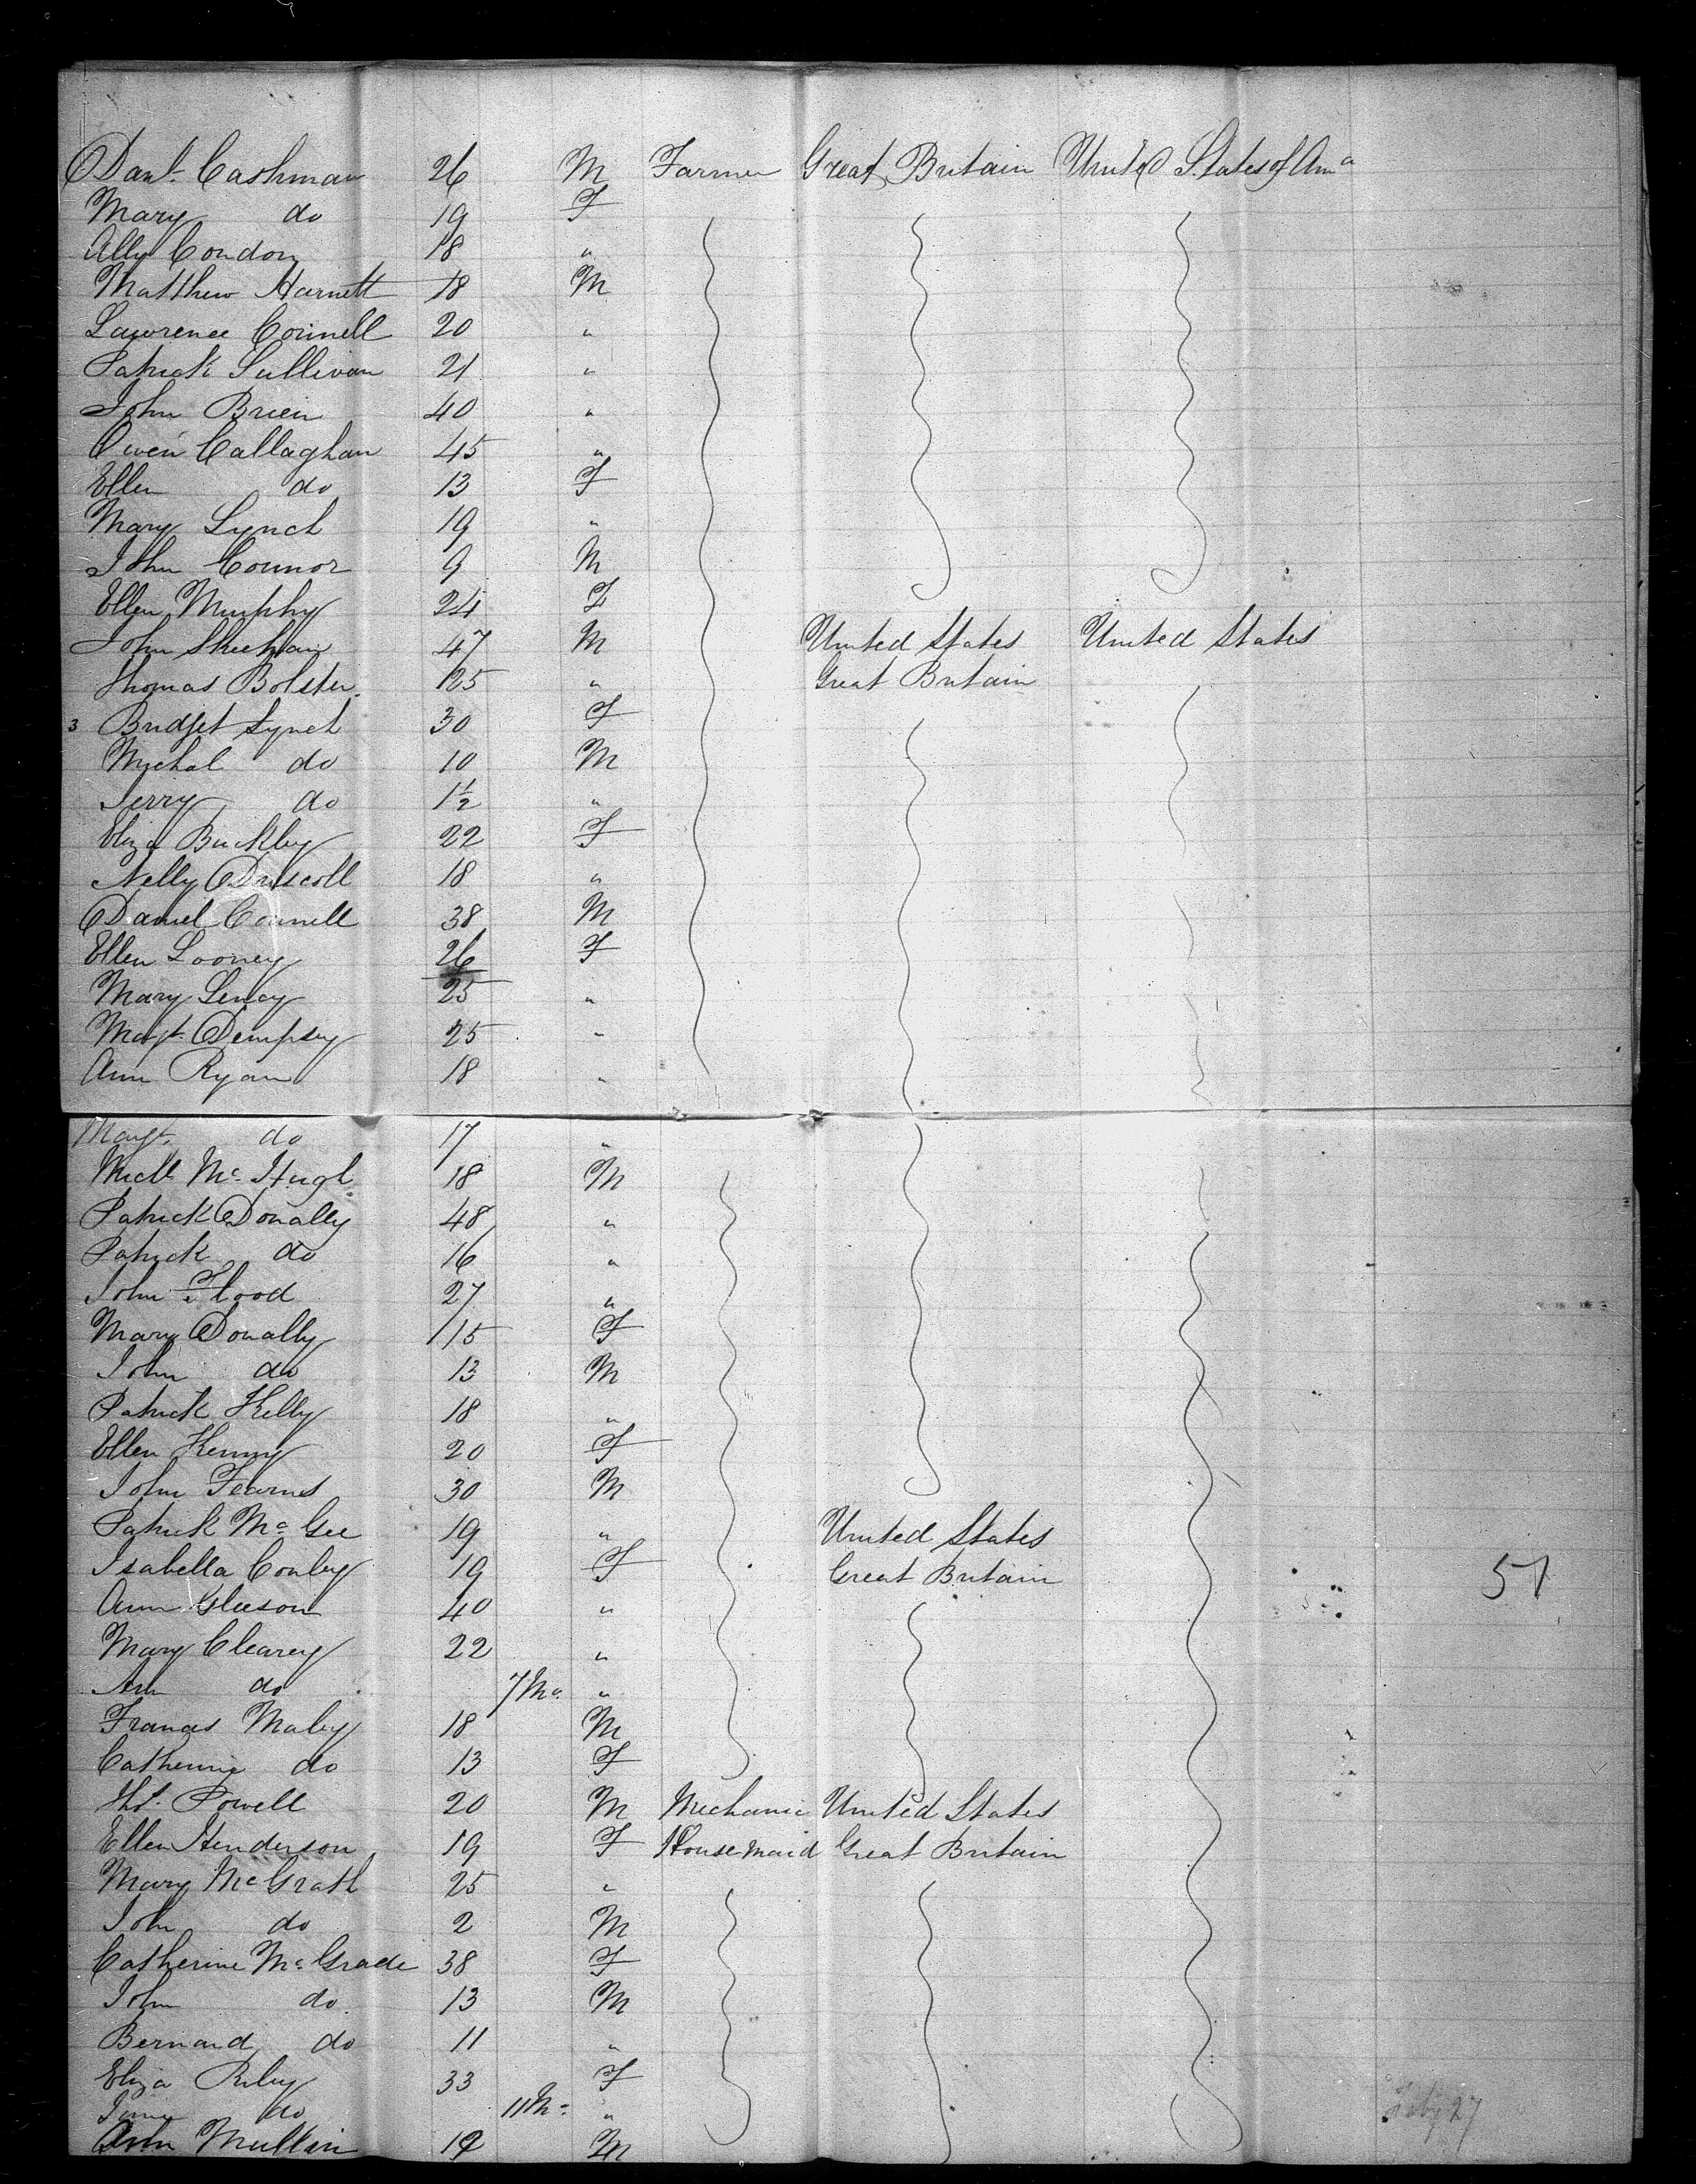 Danl. Cashman 26 M Farmer Great Britain United States of Ama
Mary do 19 F
Ally Condon 18 "
Matthew Harnett 18 M
Lawrence Connell 20 "
Patrick Sullivan 21 "
John Brien 40 "
Owen Callaghan 45 "
Ellen do 13 F
Mary Lynch 19 "
John Connor 9 M
Ellen Murphy 24 F
John Sheehan 47 M United States United States
Thomas Bolster 25 " Great Britain
3 Bridget Lynch 30 F
Michal do 10 M
Jerry do 1½ "
Eliza Buckley 22 F
Nelly Driscoll 18 "
Daniel Connell 38 M
Ellen Looney 26 F
Mary 25 "
Margt. Dempsey 25 "
Ann Ryan 18 "
Margt. do 17 "
Michl. Mc Hugh 18 M
Patrick Donally 48 "
Patrick do 16 "
John Flood 27 "
Mary Donally 15 F
John do 13 M
Patrick Kelly 18 "
Ellen Kenny 20 F
John Fearns 30 M
Patrick Mc Gee 19 " United States
Isabella Conley 19 F Great Britain 51
Ann Gleeson 40 "
Mary Clearey 22 "
Ann do 7 Mo. "
Francis Maley 18 M
Catherine do 13 F
Thos. Powell 20 M Mechanic United States
Ellen Henderson 19 F House maid Great Britain
Mary Mc Grath 25 "
John do 2 M
Catherine Mc Grade 38 F
John do 13 M
Bernard do 11 "
Eliza Riley 33 F
Jane do 11 Mo. "
Mullin 19 M
Feby 27